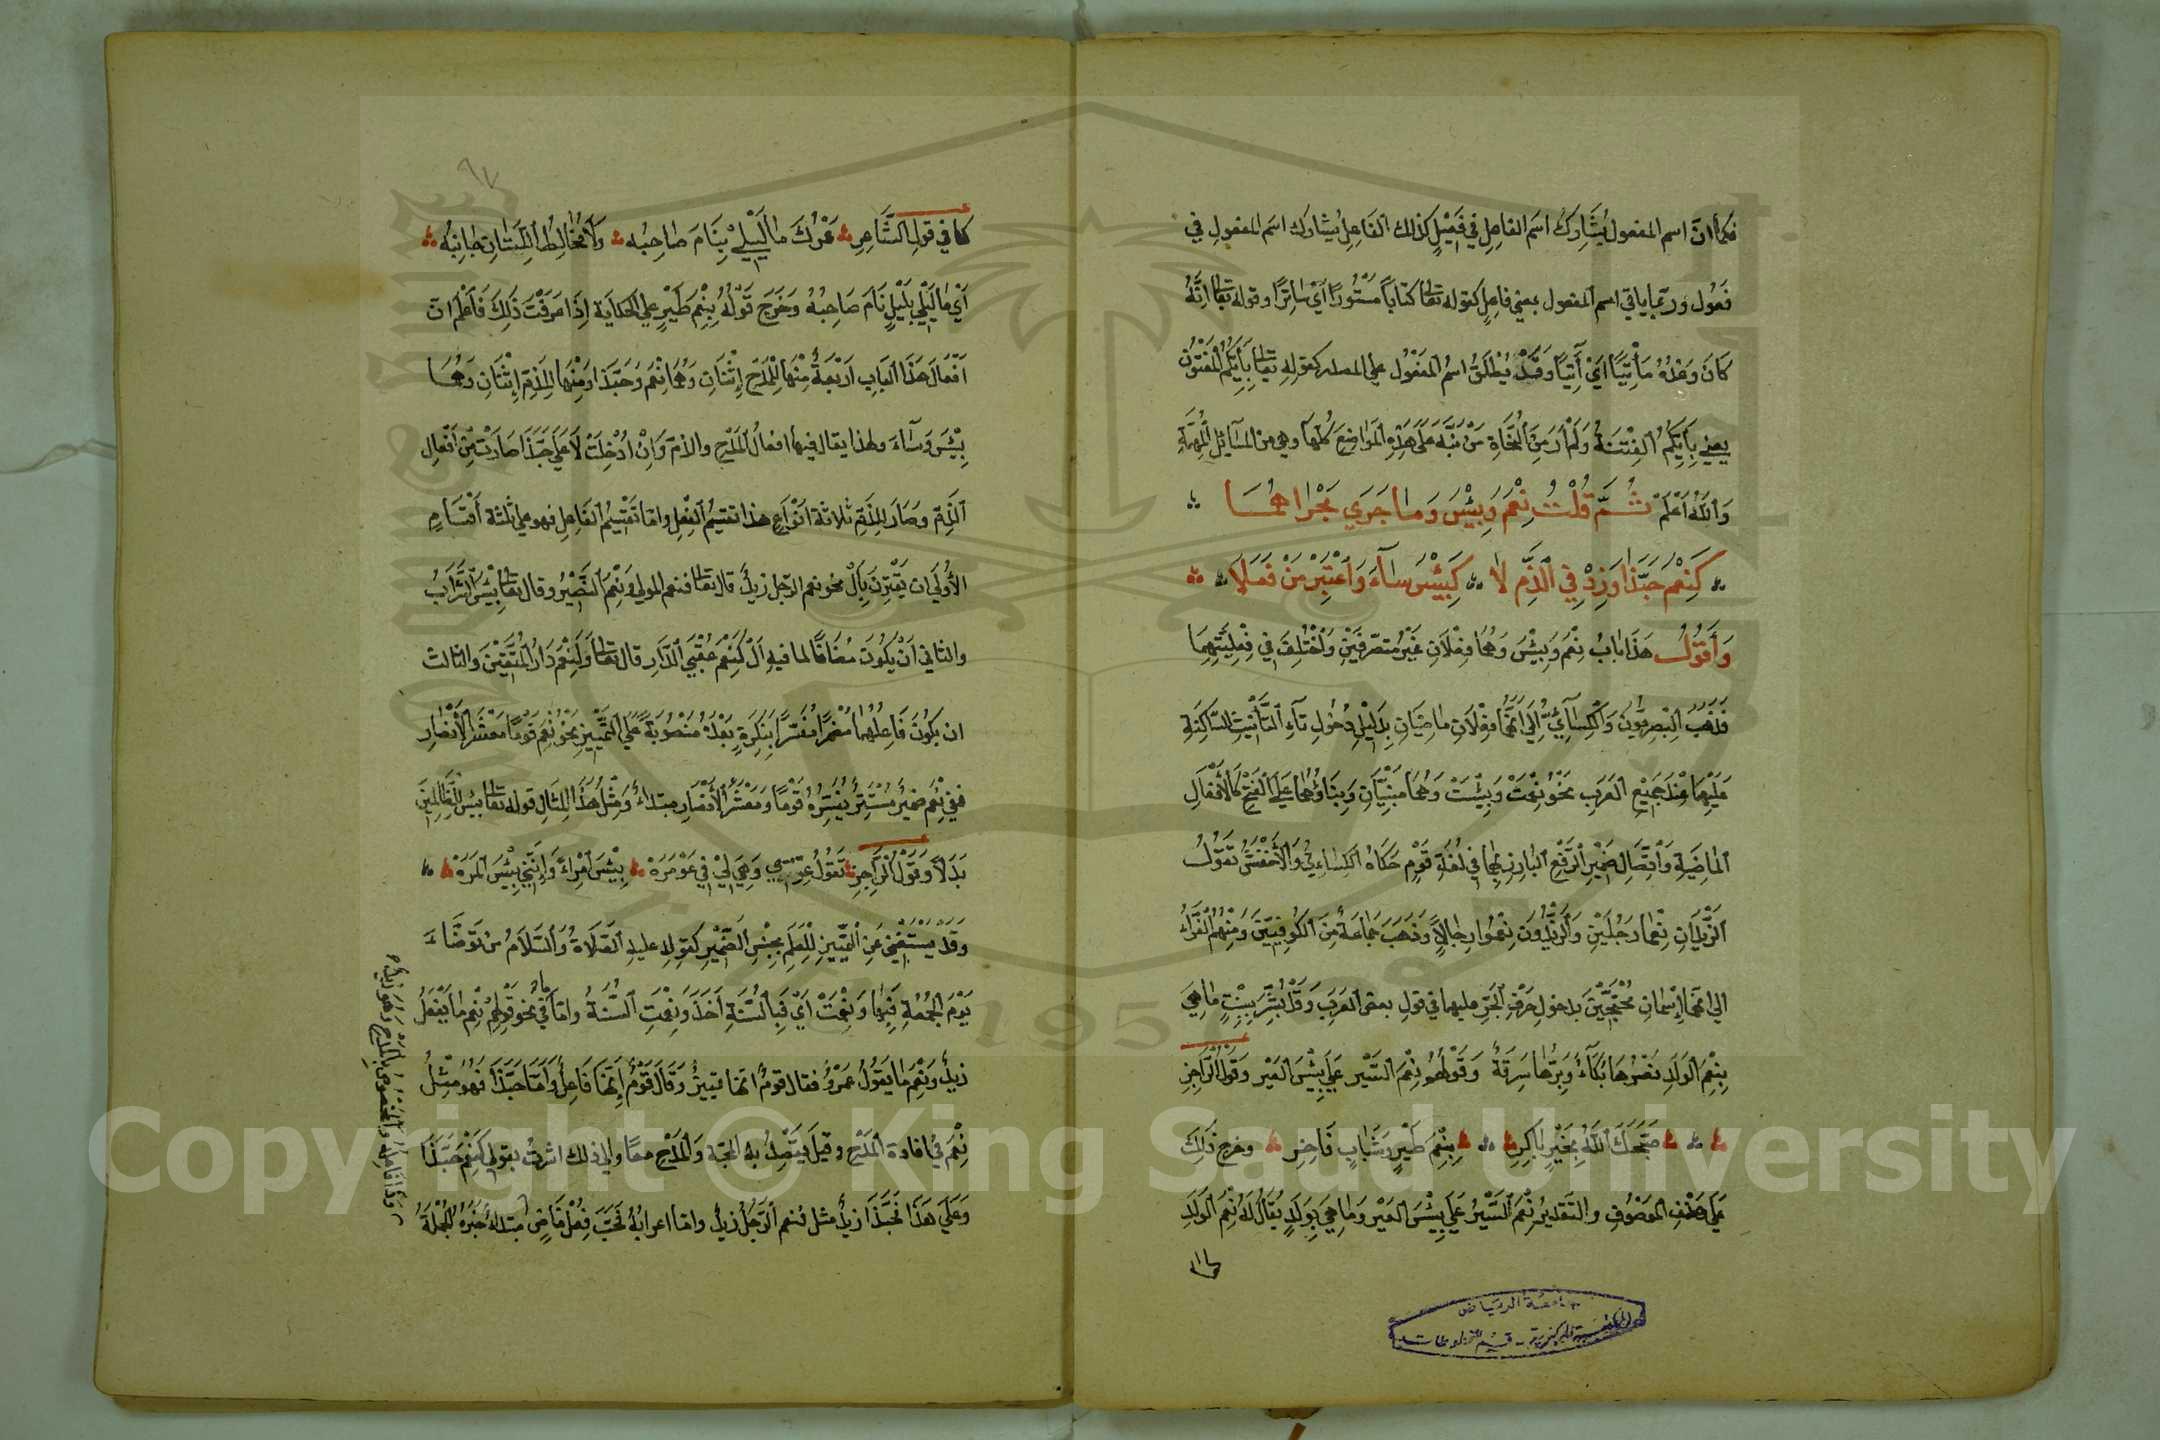 فكما ان اسم المفعول يُشَارِكُ اسم الفاعِلِ في فَعِيْلٍ كذلك الفَاعِلُ يُشارك اسم المفعولِ في
فَعُول وربّما ياتي اسم المفعول بمعني فاعِلٍ كقوله تعالى كتاباً مَسْتُورًا اَيْ سَاتِرًا وقوله تعالى اِنَّهُ
كَانَ وَعْدُهُ مَأْتِيًّا اَيْ آتِيًا وَقَدْ يُطْلَقُ اسْمُ المَفْعُول علي المصدر كقولِهِ تعالى بِأَيِّكُمُ الْمَفْتُوْن
يعني بِأَيِّكُمُ الفِتْنَةُ وَلَمْ اَرَ مِنَ النُّحَاةِ مَنْ نَبَّهَ عَلَى هَذِهِ الموَاضِعَ كُلِّهَا وهي من المسَآئِلِ المُهِمَّةِ
وَاللهُ اَعْلَمْ ثُمَّ قُلْتُ نِعْمَ وَبِئْسَ وَمَا جَرَي مَجْرَاهُمَا
كَنِعْمَ حَبَّذَا وَزِدْ فِي الذَّمِّ لا كَبِئْسَ سَآءَ وَاعْتَبِرْ مَنْ فَعَلاَ
وَأَقُوْلُ هَذَا بَابُ نِعْمَ وَبِئْسَ وَهُمَا فِعْلَانِ غَيْرُ متصَرِّفَيْنِ وَاخْتُلِفَ فِي فِعْلِيَّتِهِمَا
فَذَهَبَ البَصرِيُّوْنَ وَالْكِسَآئِيُّ اِلَي اَنَّهُمَا فِعْلَانِ مَاضِيَانِ بِدَلِيْلِ دُخُولِ تآءِ التَّأنِيْثِ السَّاكِنَةِ
عَلَيْهِمَا عِنْدَ جَمِيْعِ العَرَبِ نَحْوُ نِعْمَتْ وَبِئْسَتْ وَهُمَا مَبْنِيَّانِ وَبِنَاؤُهُمَا عَلَي الفَتْحِ كَالْأَفْعَالِ
الماضِيَةِ وَاتِّصَالِ ضَمِيْرِ الرَّفْعِ البَارِزِ بِهِمَا فِي لُغَةِ قَوْمٍ حَكَاهُ الكِسَاءِيُّ وَالأَخْفَشُ تَقُوْلُ
الزَّيْدَانِ نِعْمَا رَجُلَيْنِ وَالزَّيْدُوْنَ نِعْمُوا رِجَالاً وَذَهَبَ جَمَاعَةٌ مِنَ الكُوفِيِّيْنَ وَمِنْهُمُ الفَرَّاءُ
الي انَّهما اِسْمانِ مُحْتَجِّيْنَ بدخولِ حَرْفِ الجَرِّ عليهما في قولِ بعض العَرَبِ وَقَدْ بُشِّرَ بِبِنْتٍ مَا هِيَ
بِنِعْمَ الوَلَدِ نَصْرُهَا بُكَآءٌ وَبِرُّهَا سَرِقَةٌ وَقَوْلُهُم نِعْمَ السَّيْرِ عَلَي بِئْسَ العَيْر وَقَوْلُ الرَّاجِزِ
صَبَّحَكَ اللهُ بِخَيْرٍ بَاكِرِ بِنِعْمَ طَيْرٍ وَشَبَابٍ فَاخِرِ وخرج ذَلِكَ
عَلَي حَذْفِ المَوْصُوْفِ والتَقدِيرُ نِعْمَ السَّيْرُ عَلَي بِئْسَ العَيْر وَمَا هِيَ بِوَلَدٍ يُقَالُ لَهُ نِعْمَ الوَلَدِ
كما
جامعة الرياض
المكتبة المركزية - قسم المخطوطات
٩٧
كما في قول الشَّاعِرِ عَمْرُكَ مَا لَيْلِي بِنَامَ صَاحِبُه وَلاَ مُخَالِطُ اللَّيَانِ جَانِبُه
اَيْ مَا لَيْلِي بِلَيْلٍ نَامَ صَاحِبُهُ وَخَرَجَ قَوْلُهُ بِنِعْمَ طَيْرٍ علي الحكايَة اِذَا عَرَفْتَ ذَلِكَ فَاعْلَمْ انّ
اَفْعَالَ هَذَا البَابِ اَرْبَعَةٌ مِنْهَا لِلْمَدْحِ اِثْنَانِ وَهُمَا نِعْمَ وَحَبَّذَا وَمِنْهَا لِلذَّمِّ اِثْنَانِ وَهُمَا
بِئْسَ وَسَآءَ ولهذا يقال فيها افعالُ المَدْحِ والذمّ وَاِنْ اُدْخِلَتْ لاَ عَلَي حَبَّذَا صَارَتْ مِنْ اَفْعَالِ
الذَّمِّ وَصَارَ لِلذَّمِّ ثلاثة اَنْوَاعٍ هذا تقسيمُ الفِعْلِ وامّا تَقْسِيْمُ الفَاعِلِ فهو علي ثلثة اَقْسَامٍ
الأُولَي ان يَقْتَرِنَ بِاَلْ نحو نعم الرّجل زيدٌ قال تعالى فنعم المولي وَنِعْمَ النَّصِيْرُ وقال تعالى بِئْسَ الشَّرَابُ
والثاني اَنْ يَكُوْنَ مُضَافًا لما فيهِ اَلْ كَنِعْمَ عُقْبَي الدَّارِ قال تعالى وَلَنِعْمَ دَارُ المُتَّقِيْنَ والثّالث
ان يَكُوْنَ فَاعِلُهُمَا مُضْمَرًا مُفَسَّرًا بِنَكِرَةٍ بَعْدَهُ مَنْصُوْبَةً عَلَي التَّمْيِيْزِ نَحْوُ نِعْمَ قَوْمًا مَعْشَرُ الأَنْصَارِ
ففي نِعْمَ ضميرٌ مُسْتَتِرٌ يُفَسِّرُهُ قَوْمًا وَمَعْشَرُ الأَنْصَار مبتداءٌ وَمِثْلُ هَذَا المِثالِ قوله تعالى بِئْسَ لِلظَّالِمِيْنَ
بَدَلاً وَقَوْلُ الرَّاجِزِ تَقُوْلُ عِرْسِي وَهِيَ لِيْ فِي عَوْمَرَهْ بِئْسَ امْرِأً وَاِنَّنِي بِئْسَ المَرَهْ
وَقَدْ يُسْتَغْنَي عَنِ التَّمْيِيْزِ لِلْعِلْمِ بِجِنْسِ الضَّمِيْرِ كَقولِهِ عليهِ الصَّلَاةُ وَالسَّلَامُ من تَوَضَّاءَ
يَوْمَ الجُمْعَةِ فَبِهَا وَنِعْمَتْ اَيْ فَبِالسُّنَّةِ اَخَذَ وَنِعْمَتِ السُّنَّةُ وامّا مَا فِي نحو قَوْلِهِمْ نِعْمَ مَا يَفْعَلُ
زيدٌ وَنِعْمَ مَا يَقُوْلُ عَمْرٌو فقال قومٌ انّها تمييزٌ وَقَالَ قَوْمٌ اِنَّهَا فَاعِلٌ وَاَمَّا حَبَّذَا فَهُوَ مِثْلُ
نِعْمَ في افادة المَدْحِ وقِيْلَ يُقْصَدُ بهِ المحَبَّة وَالْمَدْحِ معًا والي ذلك اشرتُ بقولي كَنِعْمَ حَبَّذَا
وَعَلَي هَذَا فَحَبَّذَا زيدٌ مثل فنعم الرَّجُلُ زيدٌ وامّا اعرابُهُ فَحَبَّ فِعْلٌ مَاضٍ مبتداء خَبَرُهُ الجُمْلَةُ
وَذَا فَاعِلُهُ وَالمَخْصُوْصُ بِالمَدْحِ وَهُوَ زَيْدٌ